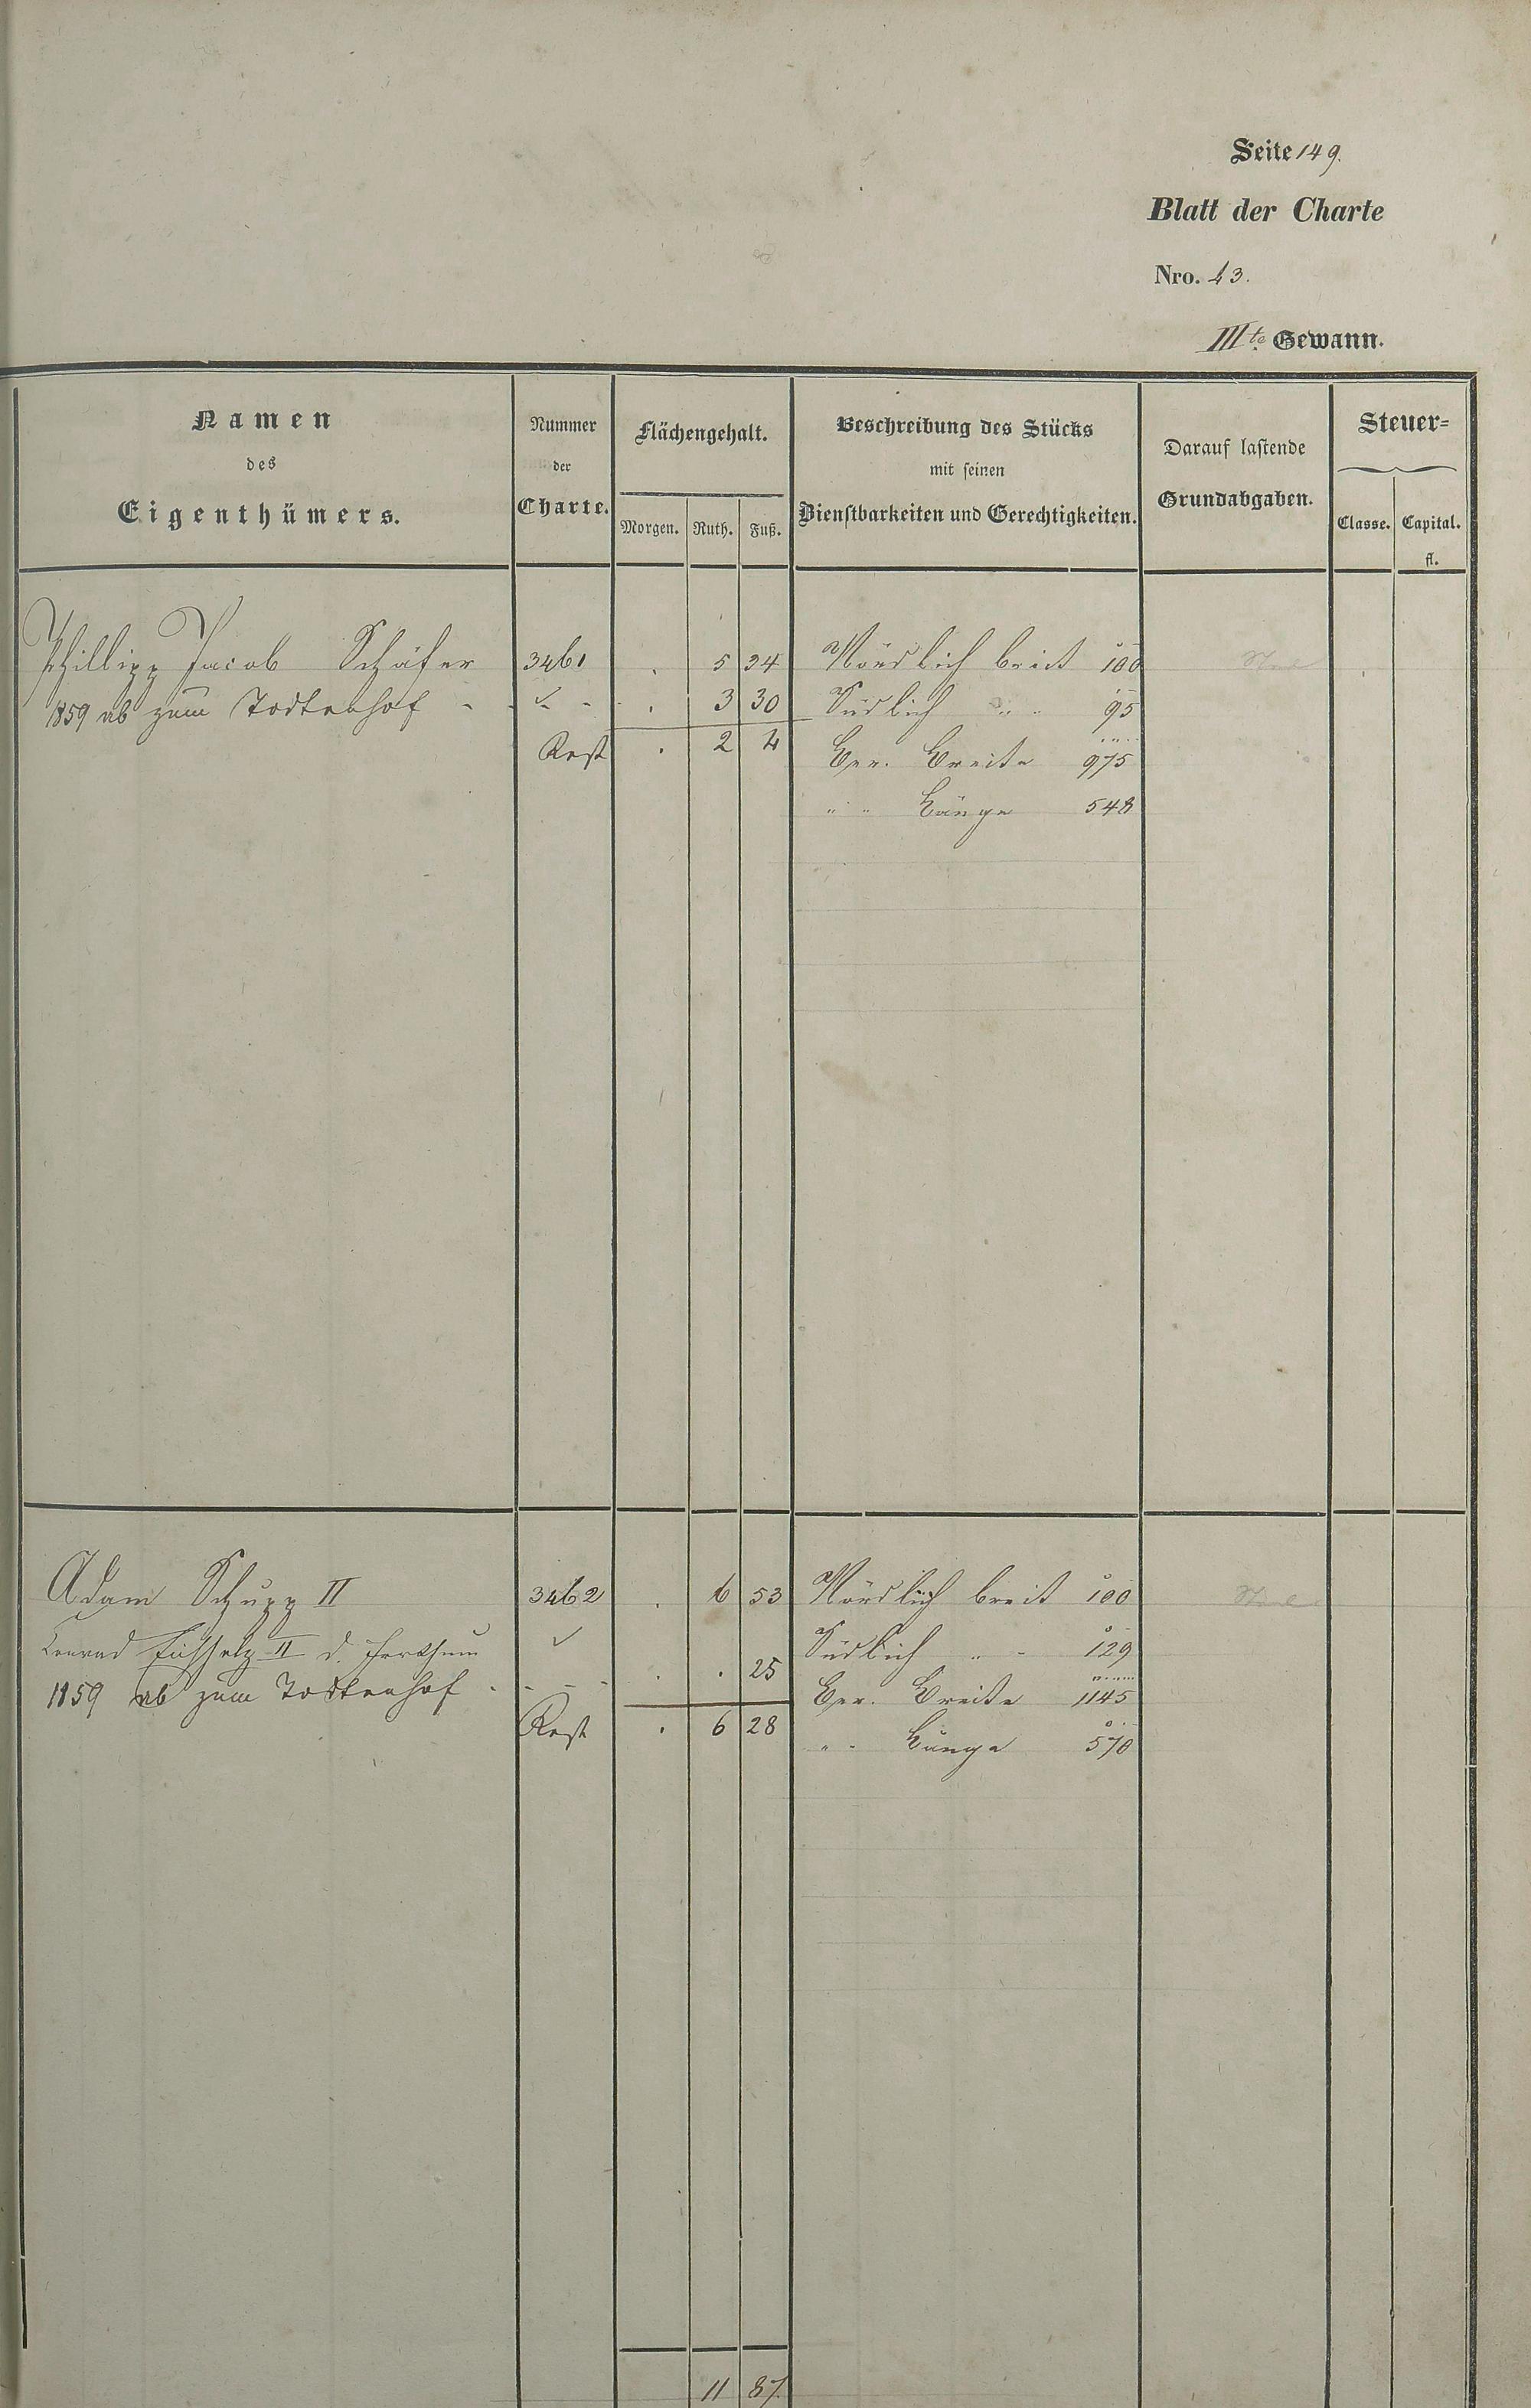 Seite 149.
Blatt der Charte
Nro. 43.
IIIte Gewann.
Namen des Eigenthümers.
Nummer der Charte.
Flächengehalt.
Morgen. Ruth. Fuß.
Beschreibung des Stücks mit seinen Dienstbarkeiten und Gerechtigkeiten.
Darauf lastende Grundabgaben.
Steuer=
Classe. Capital. fl.
Phillipp Jacob Schäfer 3461 . 5 34 Nördlich breit 100
1859 ab zum Todtenhof - - ✓ - - . 3 30 Südlich " " 95
Rest . 2 4 Ger. Breite 975
" " Länge 548
Adam Schupp II 3462 . 6 53 Nördlich breit 100
Conrad II d. ✓ Südlich " " 129
1859 ab zum Todtenhof - - - - . . 25 Ger. Breite 1145
Rest . 6 28 " " Länge 570
11 87